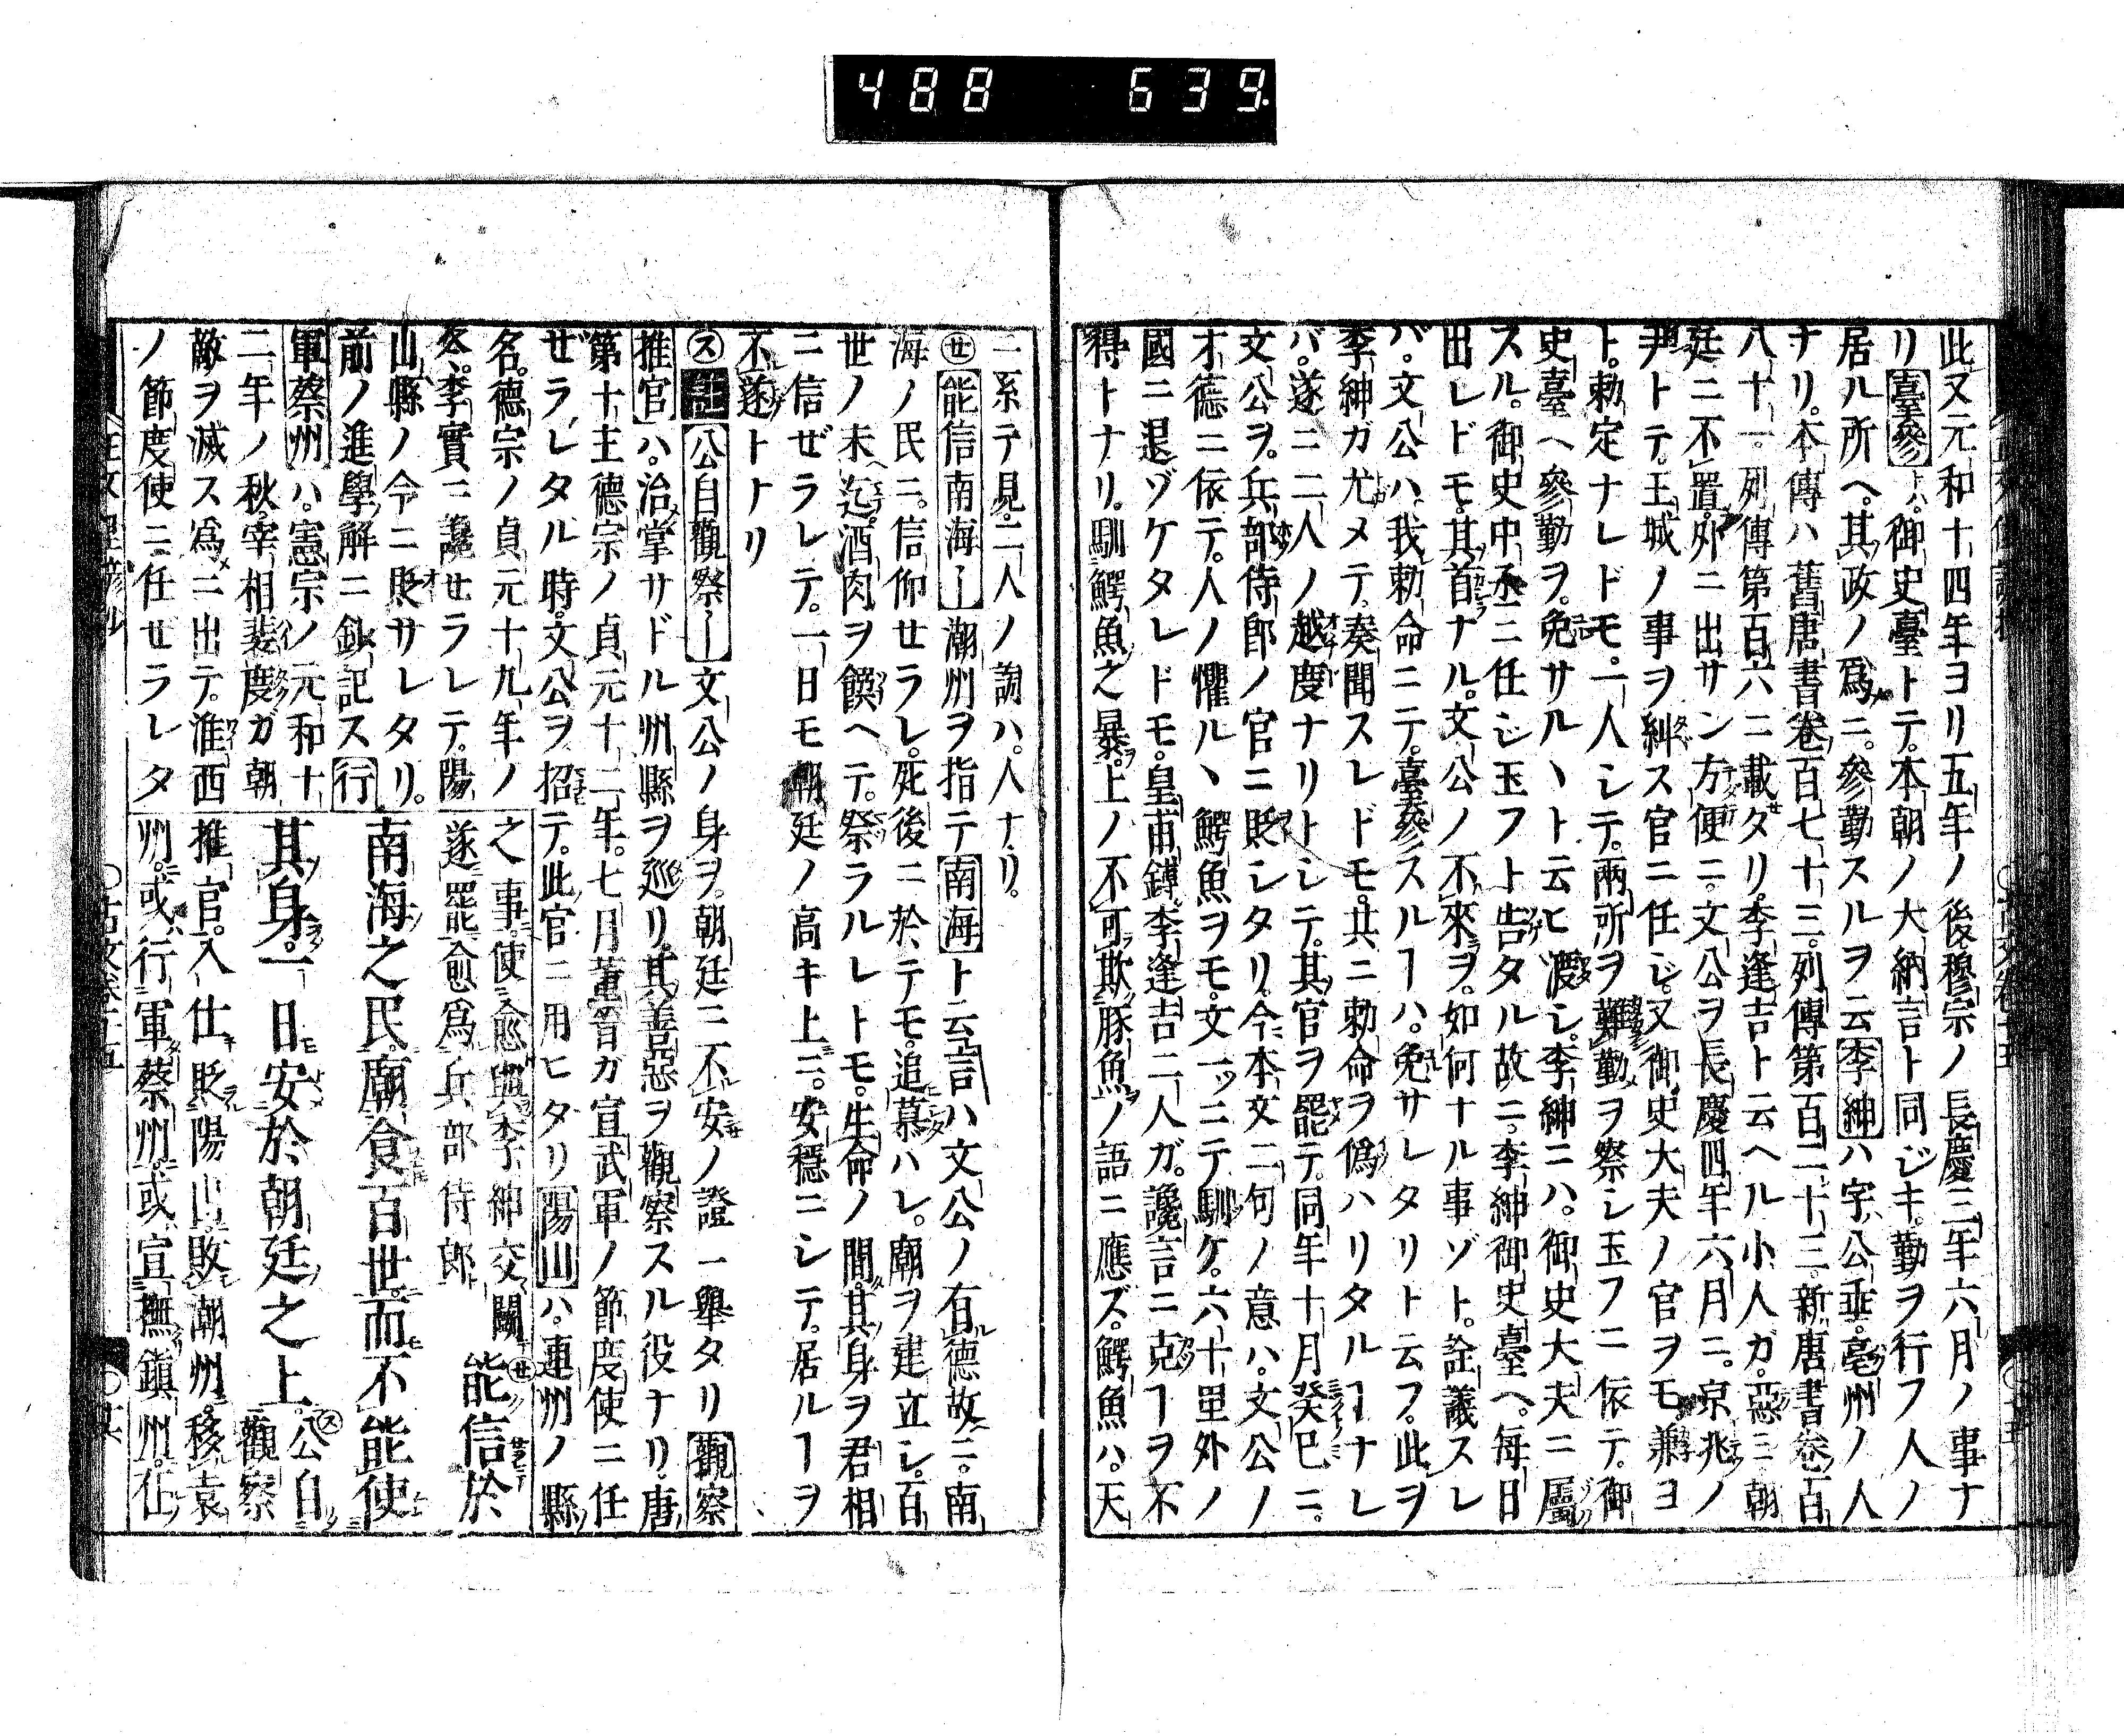 488 639
此又元和十四年ヨリ五年ノ後穆宗ノ長慶三年六月ノ事ナ
リ臺參ハ御史臺トテ本朝ノ大納言ト同ジキ勤ヲ行フ人ノ
居ル所ヘ其政ノ爲ニ參勤スルヲ云李紳ハ字公垂亳州ノ人
ナリ本傳ハ舊唐書卷百七十三列傳第百二十三新唐書卷百
八十一列傳第百六ニ載タリ李逢吉ト云ヘル小人ガ惡ミ朝
廷ニ不置外ニ出サン方便ニ文公ヲ長慶四年六月ニ京兆ノ
尹トテ王城ノ事ヲ糾ス官ニ任ジ又御史大夫ノ官ヲモ兼ヨ
ト勅定ナレドモ一人シテ兩所ヲ難勤ヲ察シ玉フニ依テ御
史臺ヘ參勤ヲ免サルヽト云ヒ渡シ李紳ニハ御史大夫ニ屬
スル御史中丞ニ任ジ玉フト告タル故ニ李紳御史臺ヘ毎日
出レドモ其首ナル文公ノ不來ヲ如何ナル事ゾト詮議スレ
バ文公ハ我勅命ニテ臺參スルヿハ免サレタリト云フ此ヲ
李紳ガ尤メテ奏聞スレドモ共ニ勅命ヲ僞ハリタルヿナレ
バ遂ニ二人ノ越度ナリトシテ其官ヲ罷テ同年十月癸巳ニ
文公ヲ兵部侍郎ノ官ニ貶シタリ今本文二句ノ意ハ文公ノ
才德ニ依テ人ノ懼ルヽ鰐魚ヲモ文一ツニテ馴ケ六十里外ノ
國ニ退ゾケタレドモ皇甫鎛李逢吉二人ガ讒言ニ克ヿヲ不
得トナリ馴鰐魚之暴上ノ不可欺豚魚ノ語ニ應ズ鰐魚ハ天
ニ系テ見二人ノ謝ハ人ナリ
㊆能信南海ー潮州ヲ指テ南海ト云言ハ文公ノ有德故ニ南
海ノ民ニ信仰セラレ死後ニ於テモ追慕ハレ廟ヲ建立シ百
世ノ末迄酒肉ヲ饌ヘテ祭ラルレトモ生命ノ間其身ヲ君相
ニ信ゼラレテ一日モ朝廷ノ高キ上ニ安穩ニシテ居ルヿヲ
不遂トナリ
㋜註公自觀察ー文公ノ身ヲ朝廷ニ不安ノ證ニ擧タリ觀察
推官ハ治掌サドル州縣ヲ巡リ其善惡ヲ觀察スル役ナリ唐
第十主德宗ノ貞元十二年七月董晉ガ宣武軍ノ節度使ニ任
ゼラレタル時文公ヲ招テ此官ニ用ヒタリ陽山ハ連州ノ縣
名德宗ノ貞元十九年ノ
冬李實ニ讒セラレテ陽
山縣ノ令ニ貶サレタリ
前ノ進學解ニ鈔記ス行
軍蔡州ハ憲宗ノ元和十
二年ノ秋宰相裴度ガ朝
敵ヲ滅ス爲ニ出テ淮西
ノ節度使ニ任セラレタ
之事使愈與李紳交鬪
遂罷愈爲兵部侍郎
能信於
南海之民廟食百世而不能使
其身一日安於朝廷之上
公自觀察
推官入仕貶陽山敗潮州移袁
州或行軍蔡州或宣撫鎭州在